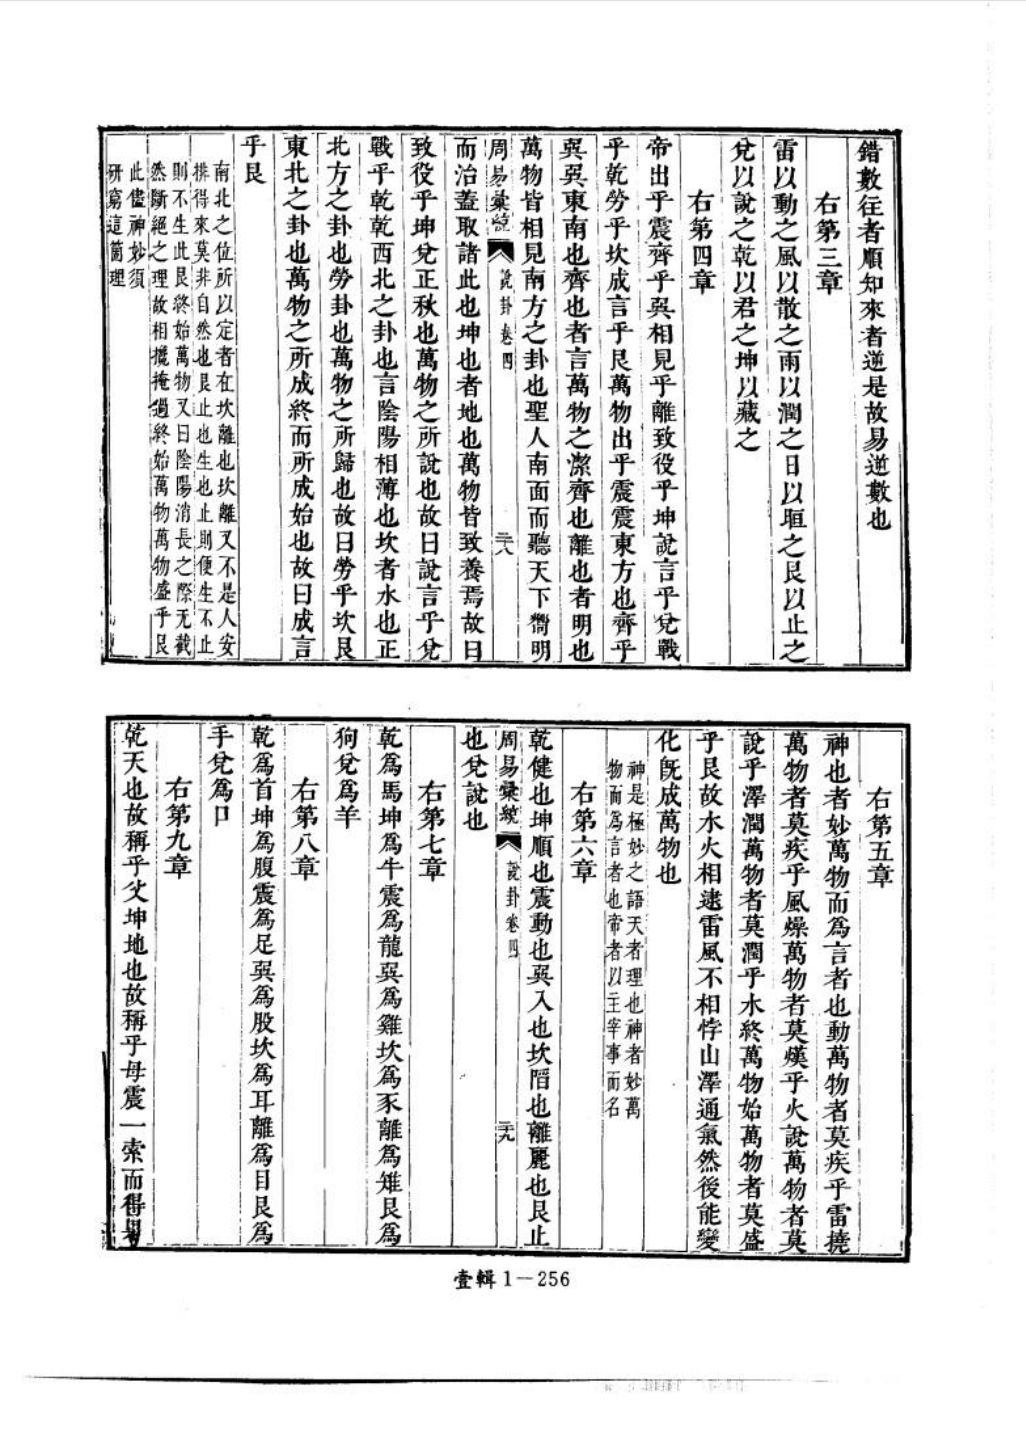 錯數往者順知來者逆是故易逆數也
右第三章
雷以動之風以散之雨以潤之日以晅之艮以止之
兌以說之乾以君之坤以藏之
右第四章
帝出乎震齊乎巽相見乎離致役乎坤說言乎兌戰
乎乾勞乎坎成言乎艮萬物出乎震震東方也齊乎
巽巽東南也齊也者言萬物之潔齊也離也者明也
萬物皆相見南方之卦也聖人南面而聽天下嚮明
周易彙統 說卦卷四 二八
而治蓋取諸此也坤也者地也萬物皆致養焉故曰
致役乎坤兌正秋也萬物之所說也故曰說言乎兌
戰乎乾乾西北之卦也言陰陽相薄也坎者水也正
北方之卦也勞卦也萬物之所歸也故曰勞乎坎艮
東北之卦也萬物之所成終而所成始也故曰成言
乎艮
南北之位所以定者在坎離也坎離又不是人安
排得來莫非自然也艮止也生也止則便生不止
則不生此艮終始萬物又曰陰陽消長之際无截
然斷絕之理故相攙掩過終始萬物萬物盛乎艮
此儘神妙須
研窮這箇理
右第五章
神也者妙萬物而爲言者也動萬物者莫疾乎雷撓
萬物者莫疾乎風燥萬物者莫熯乎火說萬物者莫
說乎澤潤萬物者莫潤乎水終萬物始萬物者莫盛
乎艮故水火相逮雷風不相悖山澤通氣然後能變
化旣成萬物也
神是極妙之語天者理也神者妙萬
物而爲言者也帝者以主宰事而名
右第六章
乾健也坤順也震動也巽入也坎陷也離麗也艮止
周易彙統 說卦卷四 二九
也兌說也
右第七章
乾爲馬坤爲牛震爲龍巽爲雞坎爲豕離爲雉艮爲
狗兌爲羊
右第八章
乾爲首坤爲腹震爲足巽爲股坎爲耳離爲目艮爲
手兌爲口
右第九章
乾天也故稱乎父坤地也故稱乎母震一索而得男
壹輯1－256